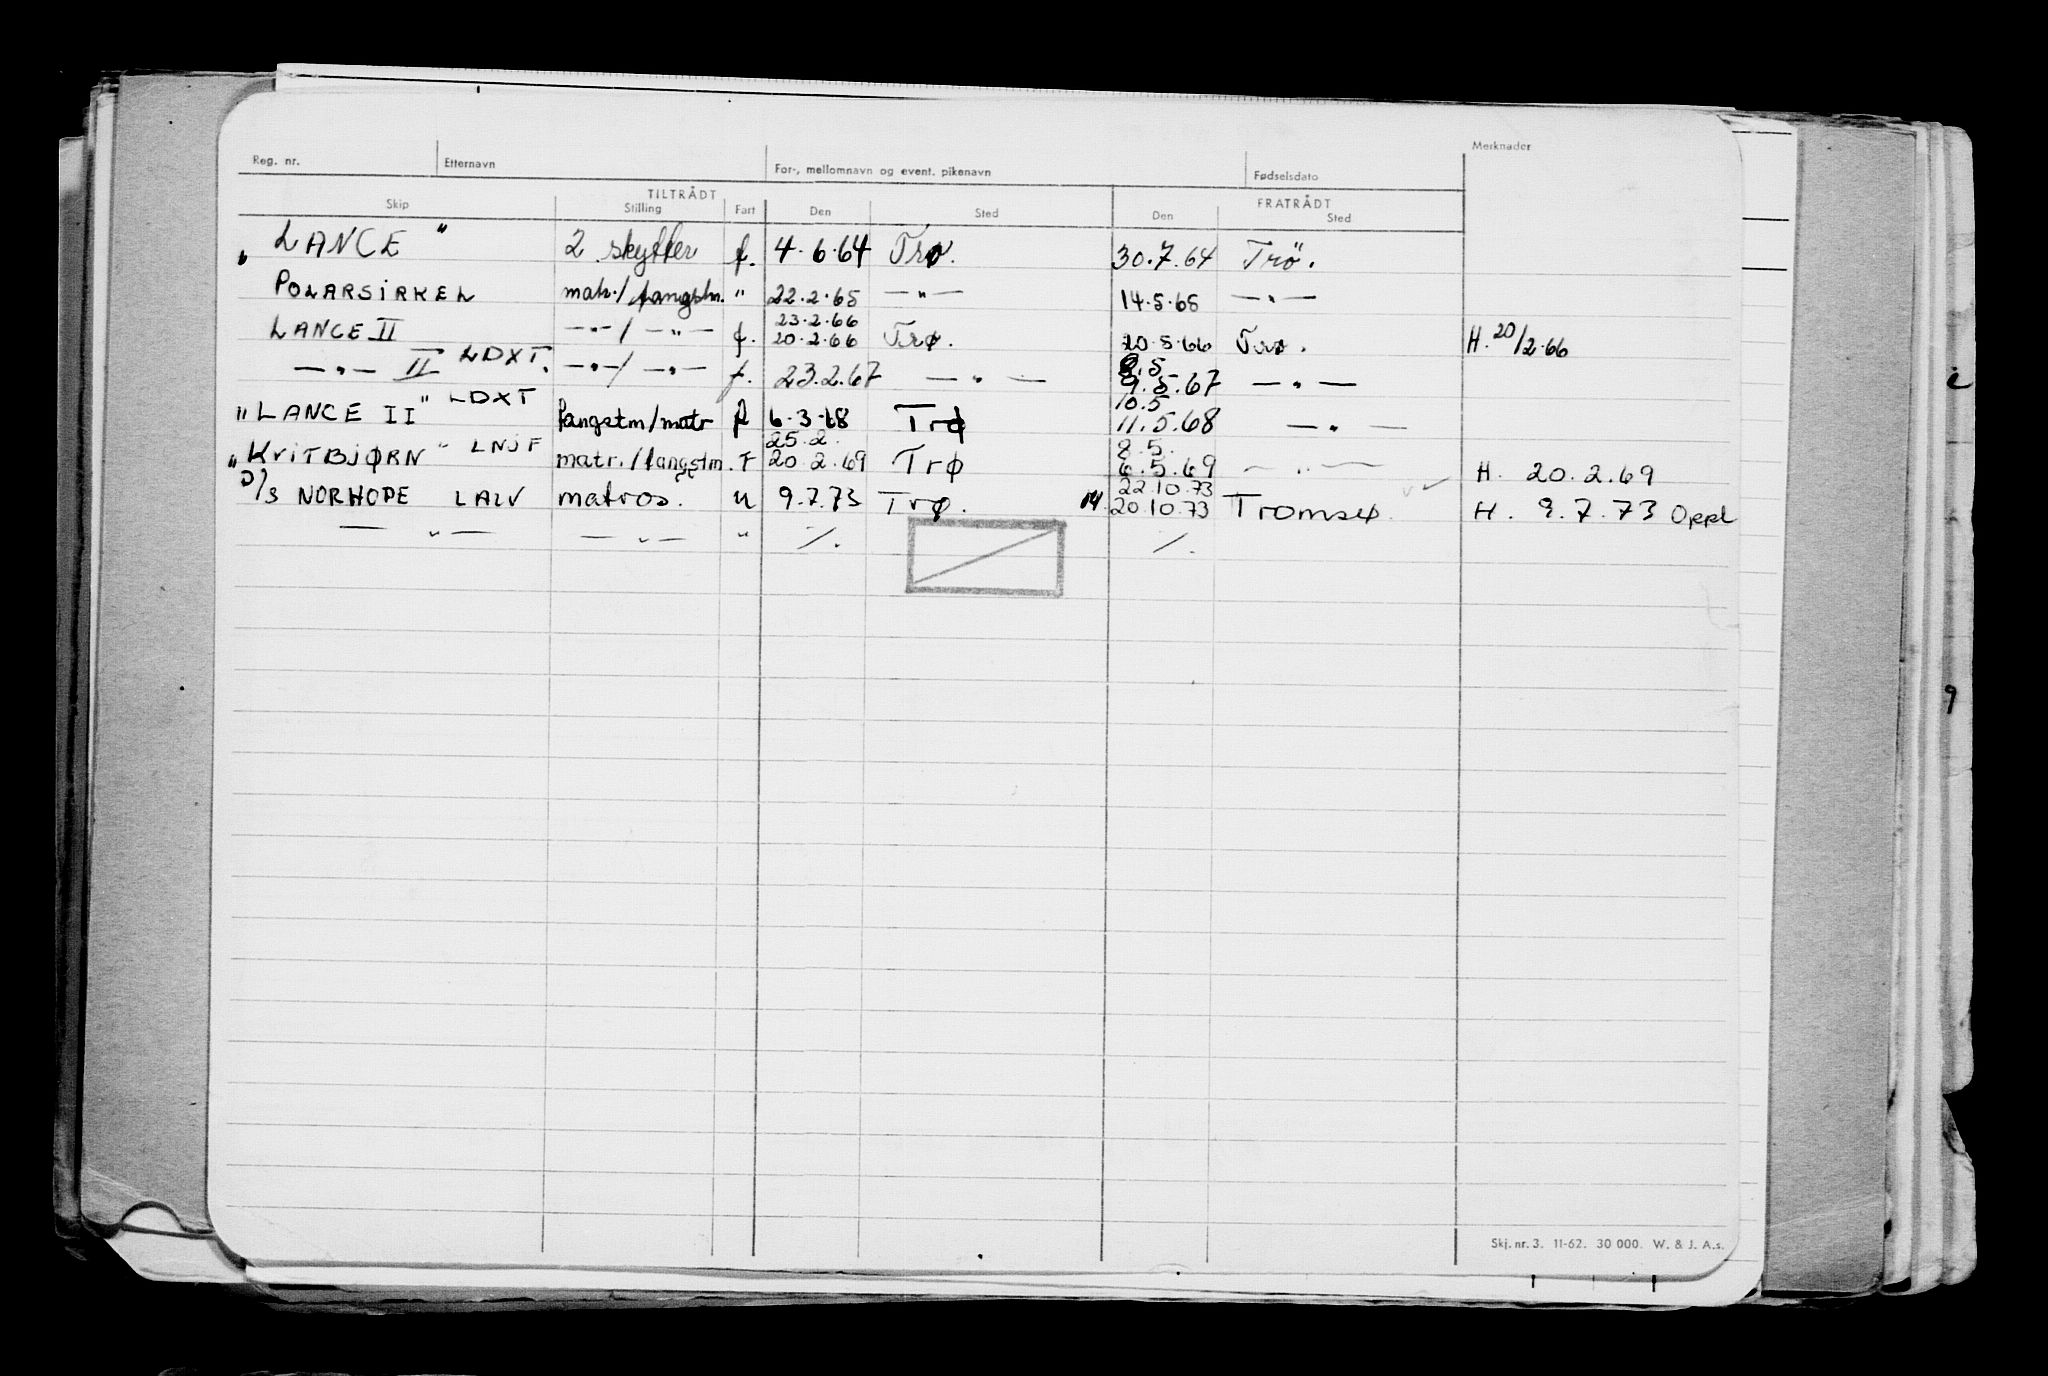 Reg. nr. Etternavn For-, mellomnavn og event. pikenavn Fødselsdato Merknader
TILTRÅDT FRATRÅDT
Skip Stilling Fart Den Sted Den Sted
„ LANCE " 2 skytter f. 4.6.64 Trø. 30.7.64 Trö.
POLARSIRKEL matr./fangstm. " 22.2.65 — " — 14.5.65 — " —
23.2.66
LANCE II — " — / — " — f. 20.2.66 Trø. 10.5.66 Trø. H. 20/2.66
8.5
— " — II LDXT. — " — / — " — f. 23.2.67 — " — 9.5.67 — " —
10.5
"LANCE II" LDXT fangstm/matr f 6.3.68 Trø 11.5.68 — " —
25.2. 8.5.
„KVITBJØRN " LNJF matr./fangstm. F 20.2.69 Trø 6.5.69 — " — H. 20.2.69
22.10.73
D/S NORHOPE LALV matros. u 9.7.73 Trø. M. 20.10.73 Tromsø. H. 9.7.73 Oppl
— " — — " — " /. /.
Skj. nr. 3. 11-62. 30 000. W. & J. A.s.